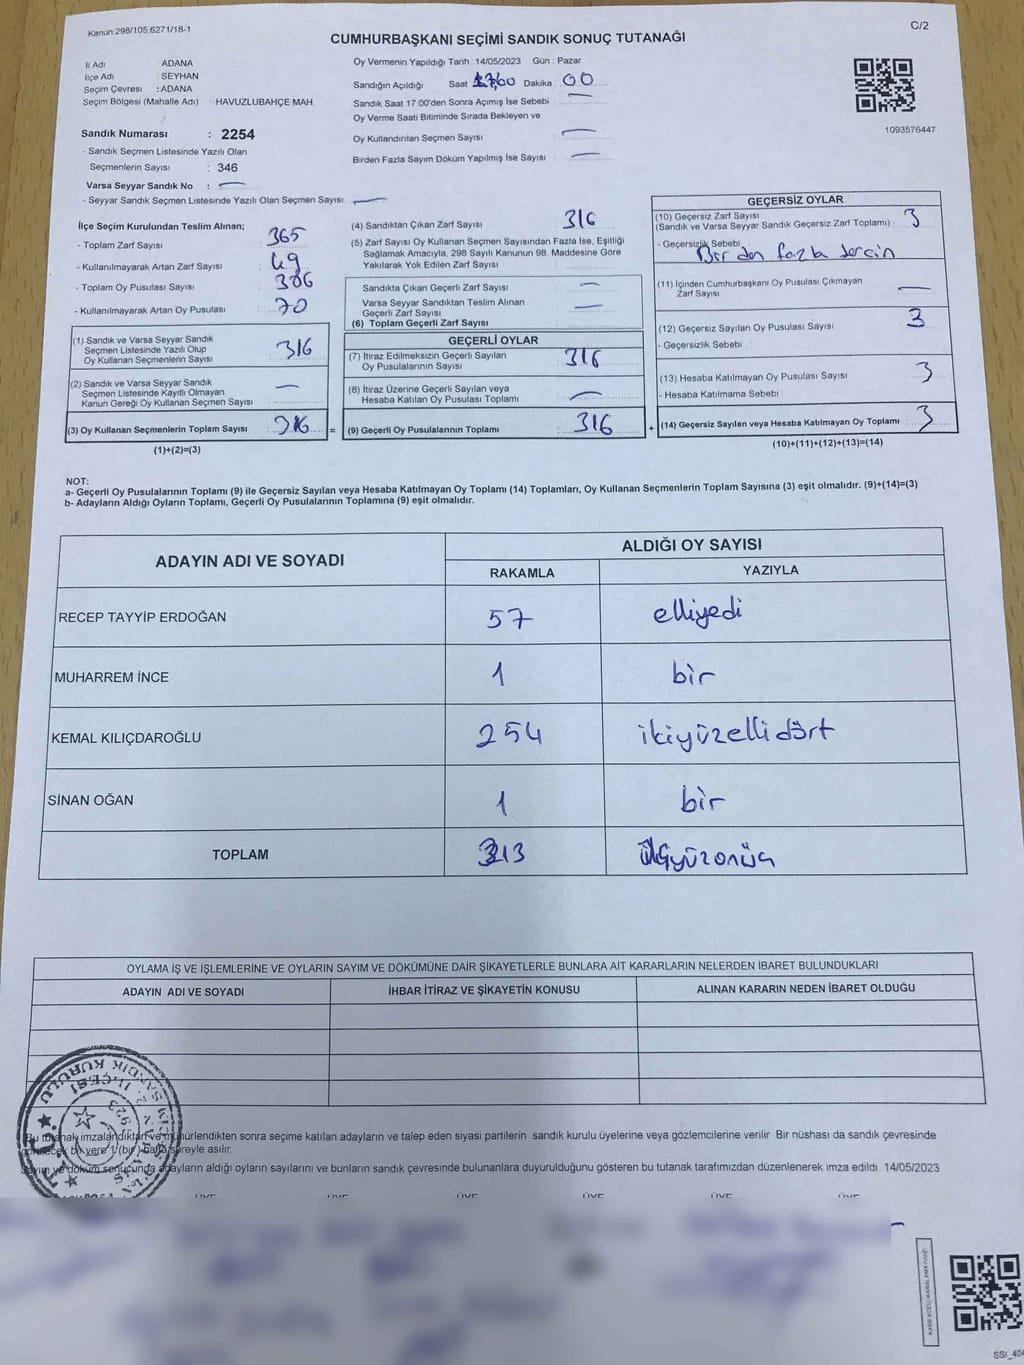 Kanun:298/105,6271/18-1
C/2
CUMHURBAŞKANI SEÇİMİ SANDIK SONUÇ TUTANAĞI
İl Adı ADANA
İlçe Adı SEYHAN
Seçim Çevresi : ADANA
Seçim Bölgesi (Mahalle Adı) : HAVUZLUBAHÇE MAH.
Sandık Numarası : 2254
- Sandık Seçmen Listesinde Yazılı Olan
Seçmenlerin Sayısı : 346
Varsa Seyyar Sandık No : —
- Seyyar Sandık Seçmen Listesinde Yazılı Olan Seçmen Sayısı: —
Oy Vermenin Yapıldığı Tarih : 14/05/2023 Gün : Pazar
Sandığın Açıldığı Saat 17:00 Dakika : 00
Sandık Saat 17:00'den Sonra Açımış İse Sebebi —
Oy Verme Saati Bitiminde Sırada Bekleyen ve
Oy Kullandırılan Seçmen Sayısı —
Birden Fazla Sayım Döküm Yapılmış İse Sayısı : —
1093576447
İlçe Seçim Kurulundan Teslim Alınan;
- Toplam Zarf Sayısı : 365
- Kullanılmayarak Artan Zarf Sayısı : 49
- Toplam Oy Pusulası Sayısı : 386
- Kullanılmayarak Artan Oy Pusulası : 70
(1) Sandık ve Varsa Seyyar Sandık
Seçmen Listesinde Yazılı Olup
Oy Kullanan Seçmenlerin Sayısı : 316
(2) Sandık ve Varsa Seyyar Sandık
Seçmen Listesinde Kayıtlı Olmayan
Kanun Gereği Oy Kullanan Seçmen Sayısı : —
(3) Oy Kullanan Seçmenlerin Toplam Sayısı : 316 =
(1)+(2)=(3)
(4) Sandıktan Çıkan Zarf Sayısı : 316
(5) Zarf Sayısı Oy Kullanan Seçmen Sayısından Fazla İse, Eşitliği
Sağlamak Amacıyla, 298 Sayılı Kanunun 98. Maddesine Göre
Yakılarak Yok Edilen Zarf Sayısı :
Sandıkta Çıkan Geçerli Zarf Sayısı : —
Varsa Seyyar Sandıktan Teslim Alınan
Geçerli Zarf Sayısı : —
(6) Toplam Geçerli Zarf Sayısı :
GEÇERLİ OYLAR
(7) İtiraz Edilmeksizin Geçerli Sayılan
Oy Pusulalarının Sayısı : 316
(8) İtiraz Üzerine Geçerli Sayılan veya
Hesaba Katılan Oy Pusulası Toplamı : —
(9) Geçerli Oy Pusulalarının Toplamı : 316 +
GEÇERSİZ OYLAR
(10) Geçersiz Zarf Sayısı
(Sandık ve Varsa Seyyar Sandık Geçersiz Zarf Toplamı) : 3
- Geçersizlik Sebebi :
Birden fazla tercih
(11) İçinden Cumhurbaşkanı Oy Pusulası Çıkmayan
Zarf Sayısı : —
(12) Geçersiz Sayılan Oy Pusulası Sayısı : 3
- Geçersizlik Sebebi :
(13) Hesaba Katılmayan Oy Pusulası Sayısı : 3
- Hesaba Katılmama Sebebi :
(14) Geçersiz Sayılan veya Hesaba Katılmayan Oy Toplamı : 3
(10)+(11)+(12)+(13)=(14)
NOT:
a- Geçerli Oy Pusulalarının Toplamı (9) ile Geçersiz Sayılan veya Hesaba Katılmayan Oy Toplamı (14) Toplamları, Oy Kullanan Seçmenlerin Toplam Sayısına (3) eşit olmalıdır. (9)+(14)=(3)
b- Adayların Aldığı Oyların Toplamı, Geçerli Oy Pusulalarının Toplamına (9) eşit olmalıdır.
ADAYIN ADI VE SOYADI ALDIĞI OY SAYISI
RAKAMLA YAZIYLA
RECEP TAYYİP ERDOĞAN 57 elliyedi
MUHARREM İNCE 1 bir
KEMAL KILIÇDAROĞLU 254 ikiyüzellidört
SİNAN OĞAN 1 bir
TOPLAM 313 üçyüzonüç
OYLAMA İŞ VE İŞLEMLERİNE VE OYLARIN SAYIM VE DÖKÜMÜNE DAİR ŞİKAYETLERLE BUNLARA AİT KARARLARIN NELERDEN İBARET BULUNDUKLARI
ADAYIN ADI VE SOYADI İHBAR İTİRAZ VE ŞİKAYETİN KONUSU ALINAN KARARIN NEDEN İBARET OLDUĞU
Bu tutanak imzalandıktan ve mühürlendikten sonra seçime katılan adayların ve talep eden siyasi partilerin sandık kurulu üyelerine veya gözlemcilerine verilir. Bir nüshası da sandık çevresinde
görülecek bir yere 1 (bir) hafta süreyle asılır.
Sayım ve döküm sonucunda adayların aldığı oyların sayılarını ve bunların sandık çevresinde bulunanlara duyurulduğunu gösteren bu tutanak tarafımızdan düzenlenerek imza edildi. 14/05/2023
ÜYE ÜYE ÜYE ÜYE ÜYE ÜYE